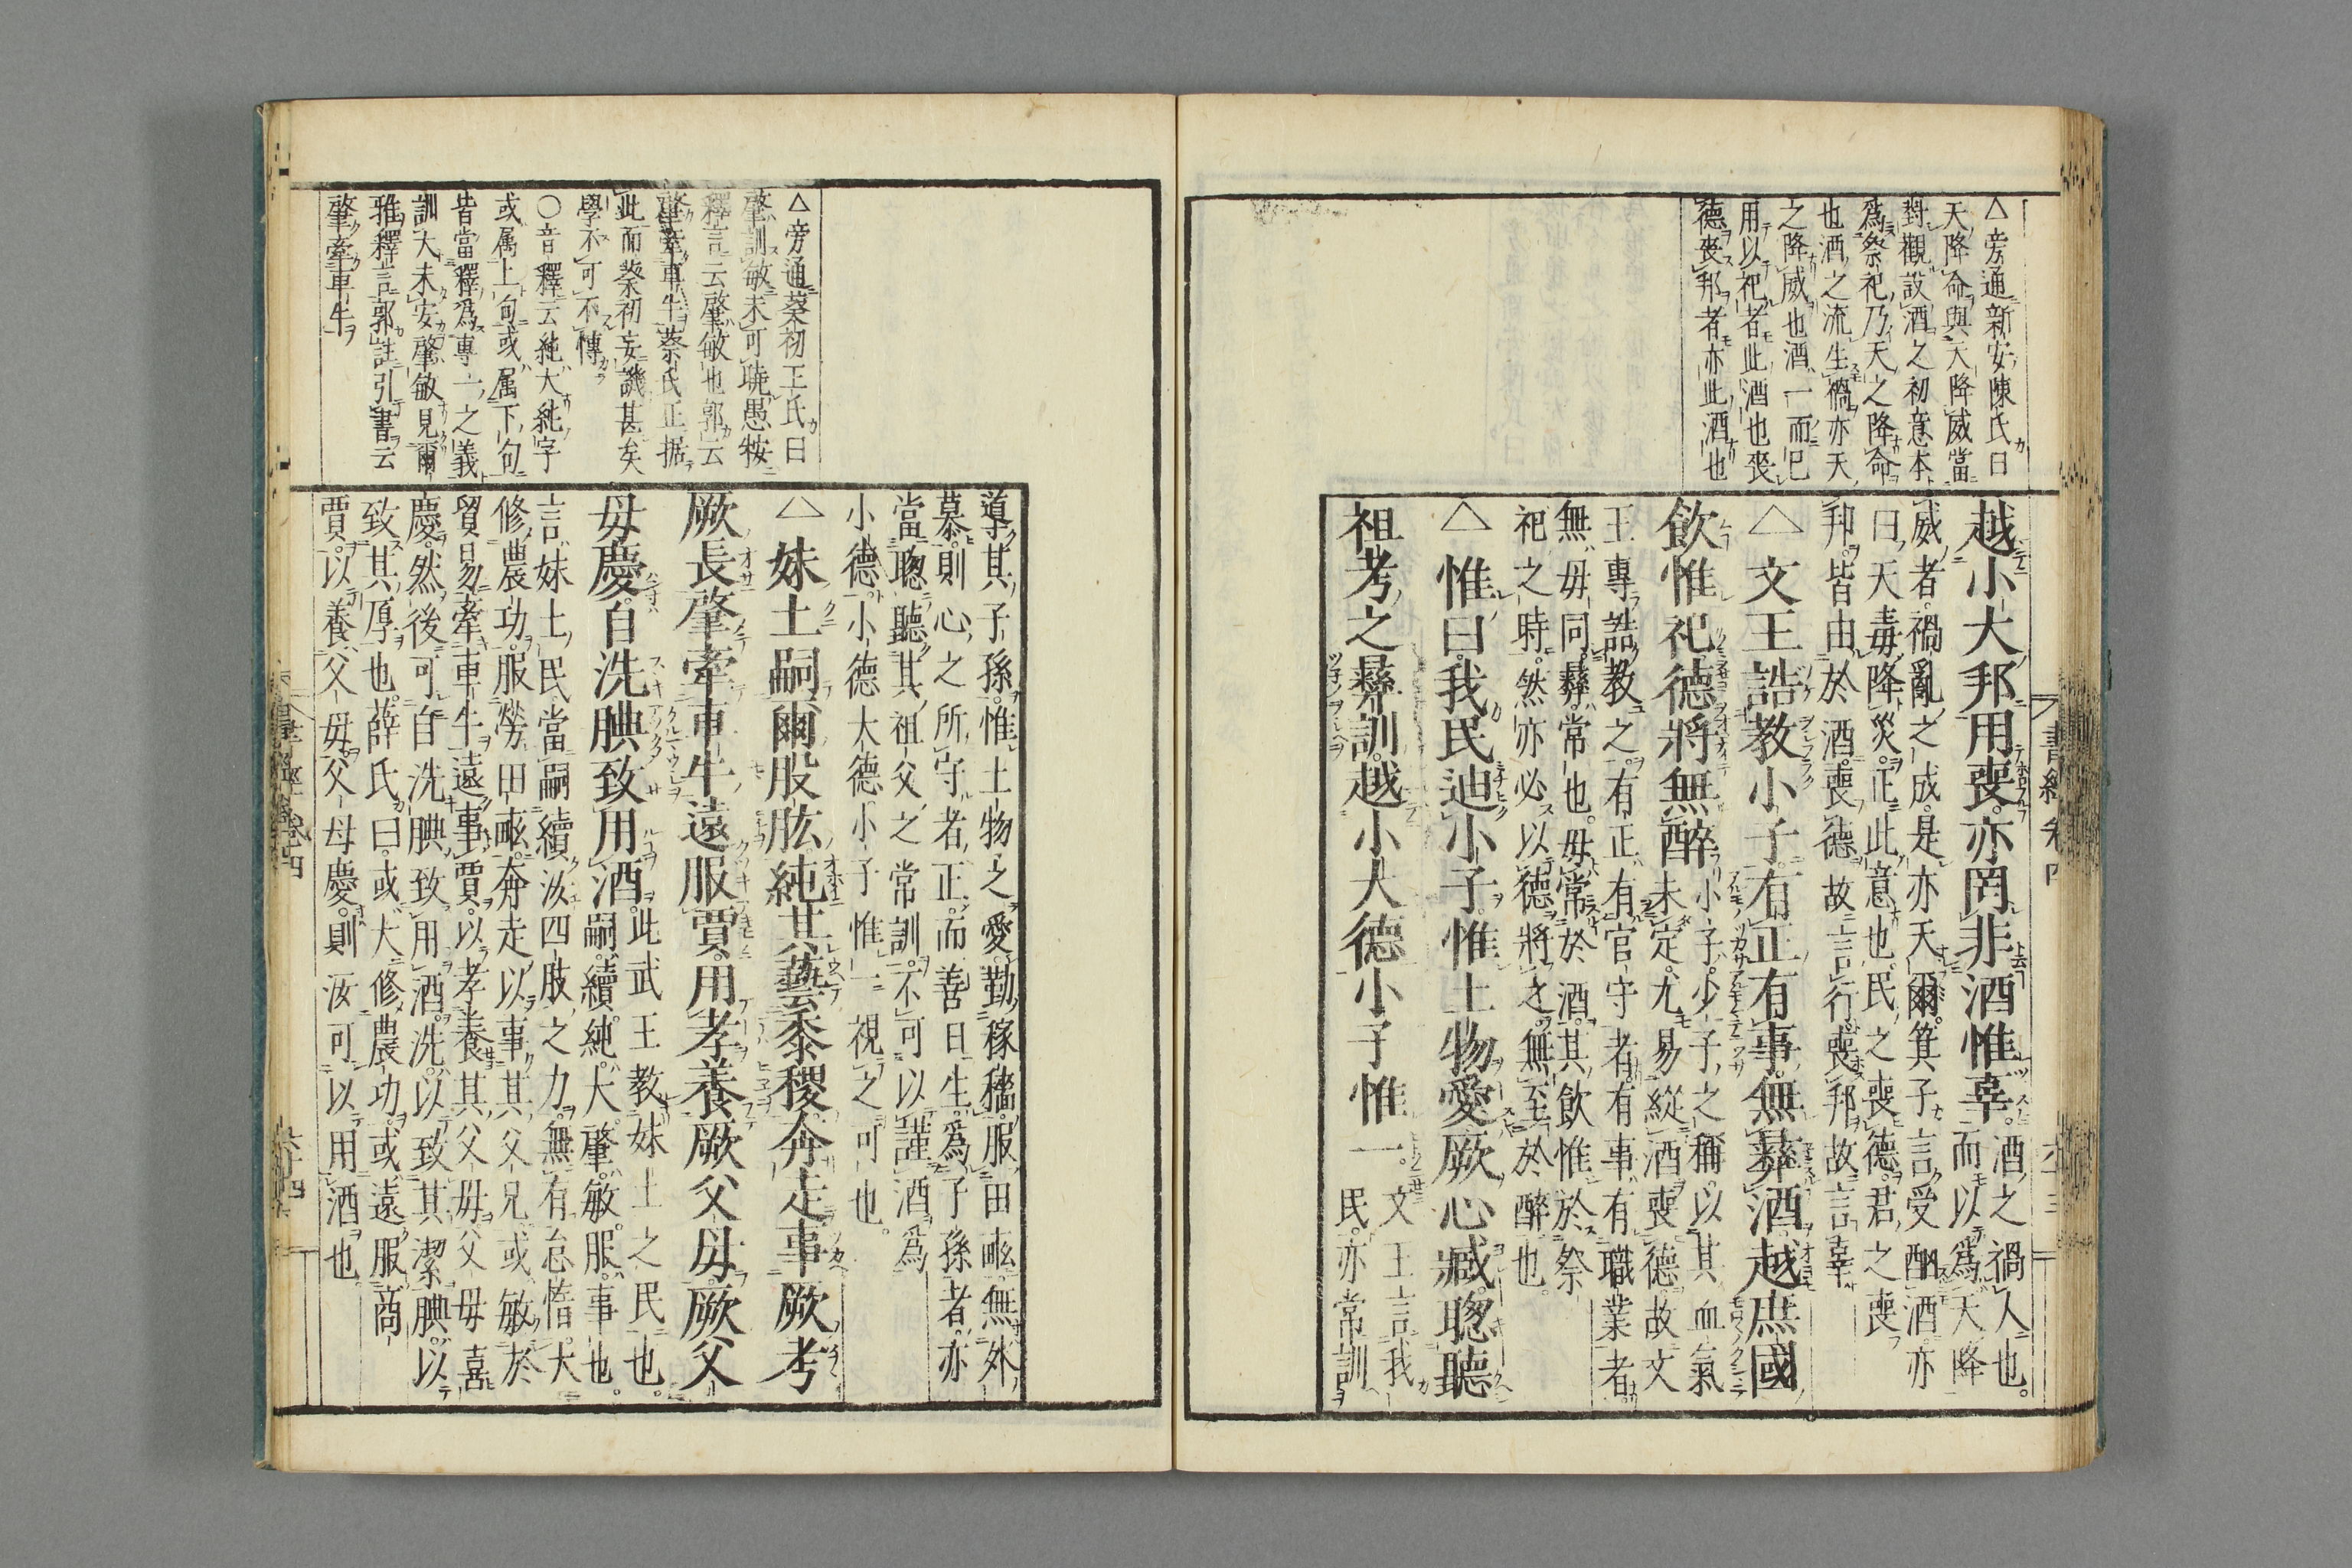 △旁通新安陳氏曰
天降命與天降威當
對觀設酒之初意本
爲祭祀乃天之降命
也酒之流生禍亦天
之降威也酒一而已
用以祀者此酒也喪
德喪邦者亦此酒也
越小大邦用喪亦罔非酒惟辜酒之禍人也
而以爲天降
威者禍亂之成是亦天爾箕子言受酗酒亦
曰天毒降災正此意也民之喪德君之喪
邦皆由於酒喪德故言行喪邦故言辜
△文王誥教小子有正有事無彝酒越庶國
飲惟祀德將無醉小子少子之稱以其血氣
未定尤易縱酒喪德故文
王專誥教之有正有官守者有事有職業者
無毋同彝常也毋常於酒其飲惟於祭
祀之時然亦必以德將之無至於醉也
△惟曰我民迪小子惟土物愛厥心臧聰聽
祖考之彝訓越小大德小子惟一文王言我
民亦常訓
書經卷四
六十三
△旁通蔡初王氏曰
肇訓敏未可曉愚按
釋言云肇敏也郭云
肇牽車牛蔡氏正据
此而蔡初妄譏甚矣
學不可不慱
○音釋云純大純字
或属上句或属下句
皆當釋爲專一之義
訓大未安肇敏見爾
雅釋言郭註引書云
肇牽車牛
導其子孫惟土物之愛勤稼穡服田畝無外
慕則心之所守者正而善日生爲子孫者亦
當聰聽其祖父之常訓不可以謹酒爲
小德小德大德小子惟一視之可也
△妹土嗣爾股肱純其藝黍稷奔走事厥考
厥長肇牽車牛遠服賈用孝養厥父母厥父
母慶自洗腆致用酒此武王教妹土之民也
嗣續純大肇敏服事也
言妹土民當嗣續汝四肢之力無有怠惰大
修農功服勞田畝奔走以事其父兄或敏於
貿易牽車牛遠事賈以孝養其父母父母喜
慶然後可自洗腆致用酒洗以致其潔腆以
致其厚也薛氏曰或大修農功或遠服商
賈以養父母父母慶則汝可以用酒也
六十四